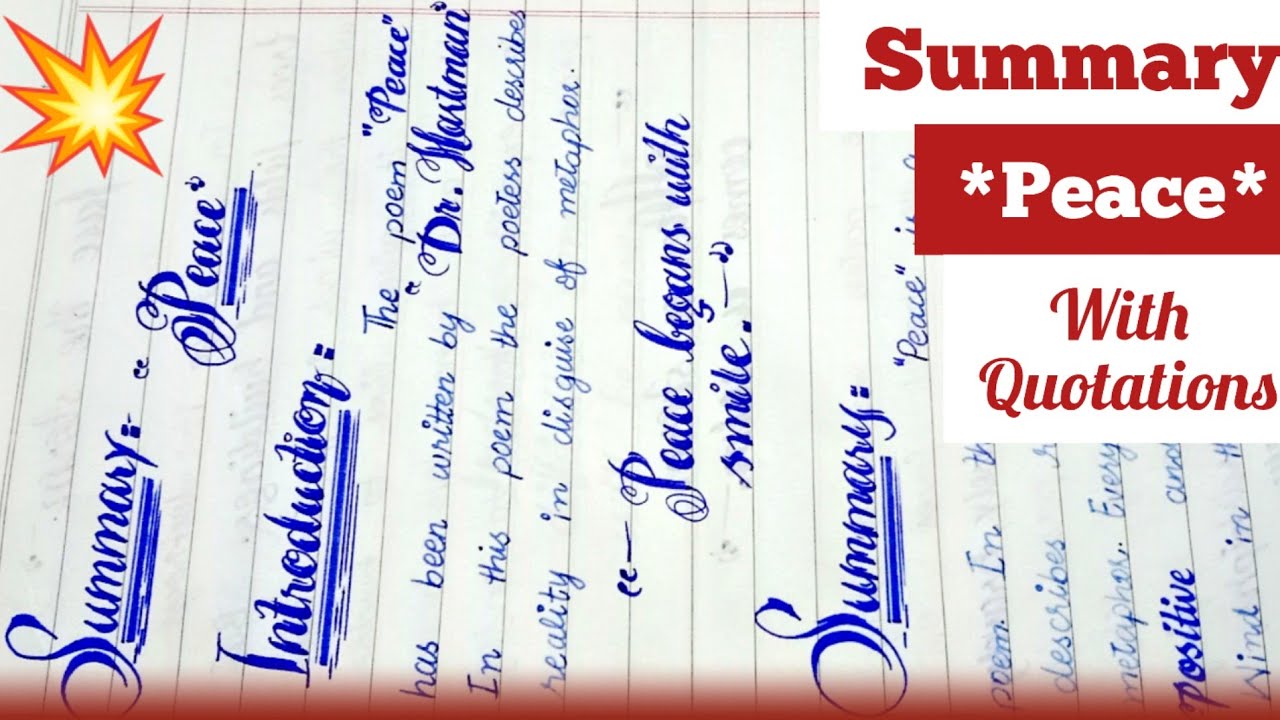 Summary
*Peace*
With
Quotations
Summary:- "Peace"
Introduction:-
The poem "Peace"
has been written by "Dr. Hartman"
In this poem the poetess describes
reality in disguise of metaphor.
"Peace begans with
smile."
Summary:-
"Peace" is a
poem. In th
describes r
metaphor. Every
positive and
Wind in th